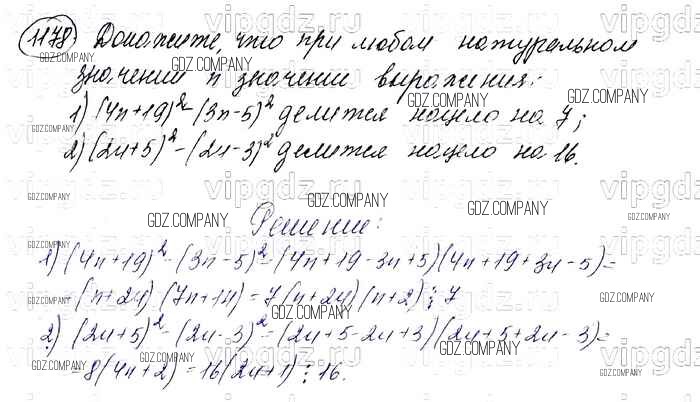 1178. Докажите, что при любом натуральном
значении n значение выражения:
1) (4n+19)² - (3n-5)² делится нацело на 7;
2) (2n+5)² - (2n-3)² делится нацело на 16.
Решение:
1) (4n+19)² - (3n-5)² = (4n+19-3n+5)(4n+19+3n-5) =
= (n+24)(7n+14) = 7(n+24)(n+2) ⋮ 7
2) (2n+5)² - (2n-3)² = (2n+5-2n+3)(2n+5+2n-3) =
= 8(4n+2) = 16(2n+1) ⋮ 16.